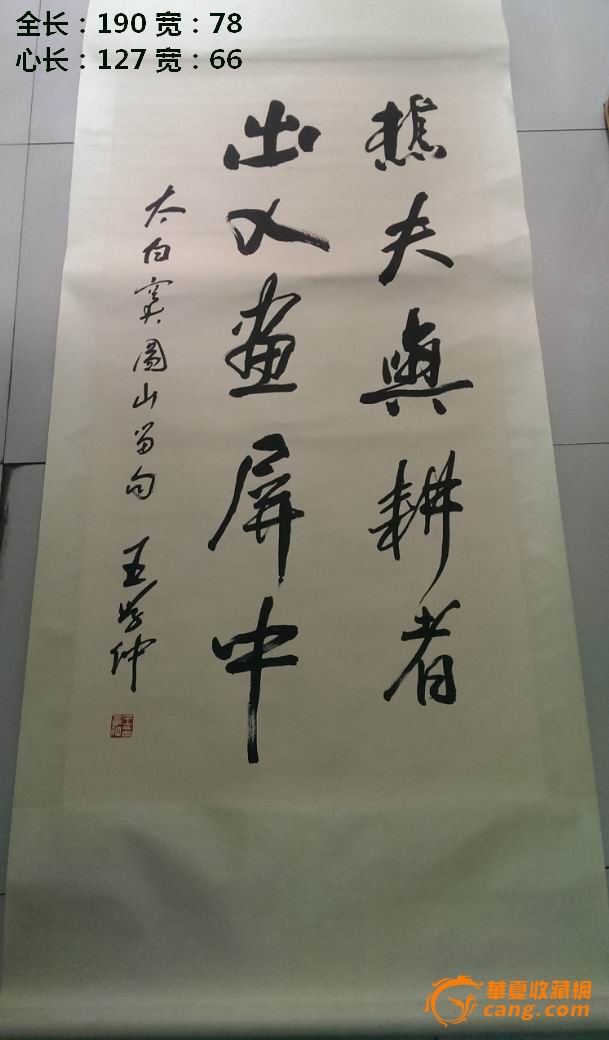 全长：190 宽：78
心长：127 宽：66
樵夫與耕者
出入畫屏中
太白窦圌山留句 王学仲
華夏收藏網
cang.com